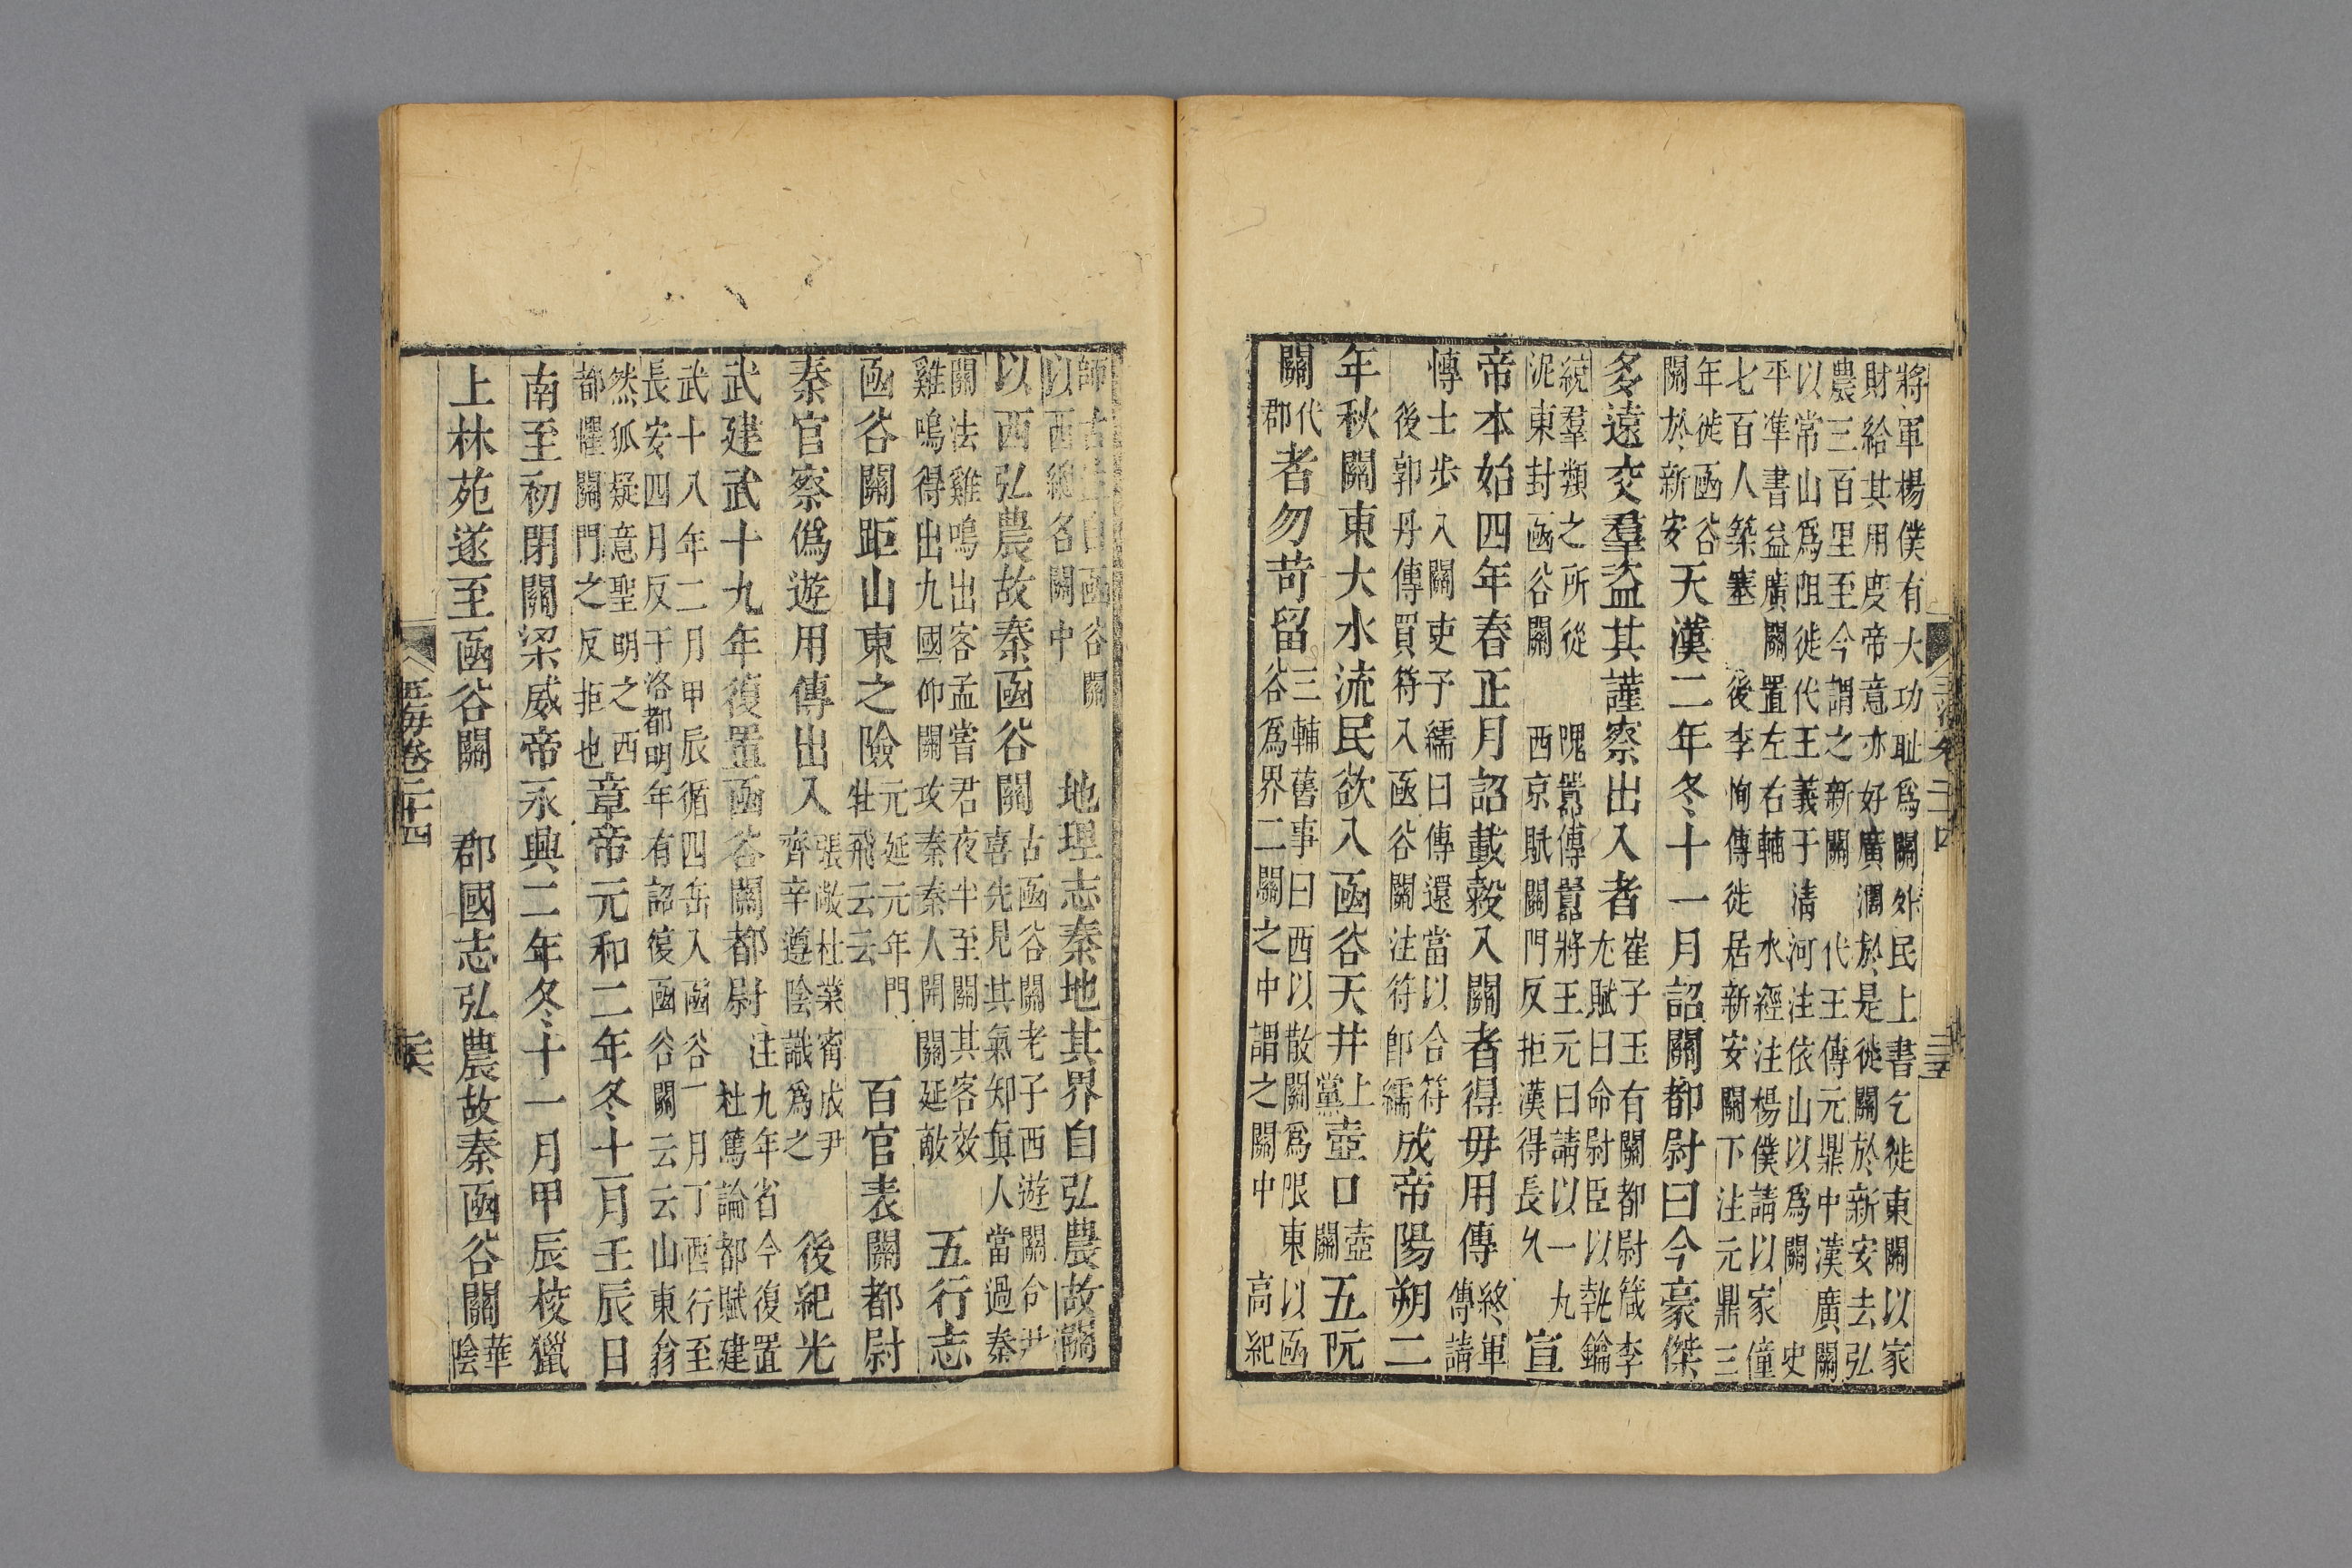 將軍楊僕有大功耻爲關外民上書乞徙東關以家
財給其用度帝意亦好廣濶於是徙關於新安去弘
農三百里至今謂之新關　代王傳元鼎中漢廣關
以常山爲阻徙代王義于清河注依山以爲關　史
平準書益廣關置左右輔　水經注楊僕請以家僮
七百人築塞　後李恂傳徙居新安關下注元鼎三
年徙函谷
關於新安
天漢二年冬十一月詔關都尉曰今豪傑
多遠交羣盜其謹察出入者
崔子玉有關都尉箴李
尤賦曰命尉臣以執鑰
統羣類之所從　隗囂傳囂將王元曰請以一九
泥東封函谷關　西京賦關門反拒漢得長久
宣
帝本始四年春正月詔載穀入關者得毋用傳
終軍
傳請
慱士步入關吏予繻曰傳還當以合符
後郭丹傳買符入函谷關注符卽繻
成帝陽朔二
年秋關東大水流民欲入函谷天井
上
黨
壺口
壺
關
五阮
關
代
郡
者勿苛留
三輔舊事曰西以散關爲限東以函
谷爲界二關之中謂之關中　高紀
師古曰自函谷關
以西總名關中
地理志秦地其界自弘農故關
以西弘農故秦函谷關
古函谷關老子西遊關令尹
喜先見其氣知眞人當過秦
關法雞鳴出客孟嘗君夜半至關其客效
雞鳴得出九國仰關攻秦秦人開關延敵
五行志
函谷關距山東之險
元延元年門
牡飛云云
百官表關都尉
秦官察僞遊用傳出入
張敞杜業甯成尹
齊辛遵陰識爲之
後紀光
武建武十九年復置函谷關都尉
注九年省今復置
杜篤論都賦建
武十八年二月甲辰循四岳入函谷一月丁酉行至
長安四月反于洛都明年有詔復函谷關云云山東翁
然狐疑意聖明之西
都懼關門之反拒也
章帝元和二年冬十一月壬辰日
南至初閉關梁威帝永興二年冬十一月甲辰校獵
上林苑遂至函谷關　郡國志弘農故秦函谷關
華
陰
玉海卷二十四